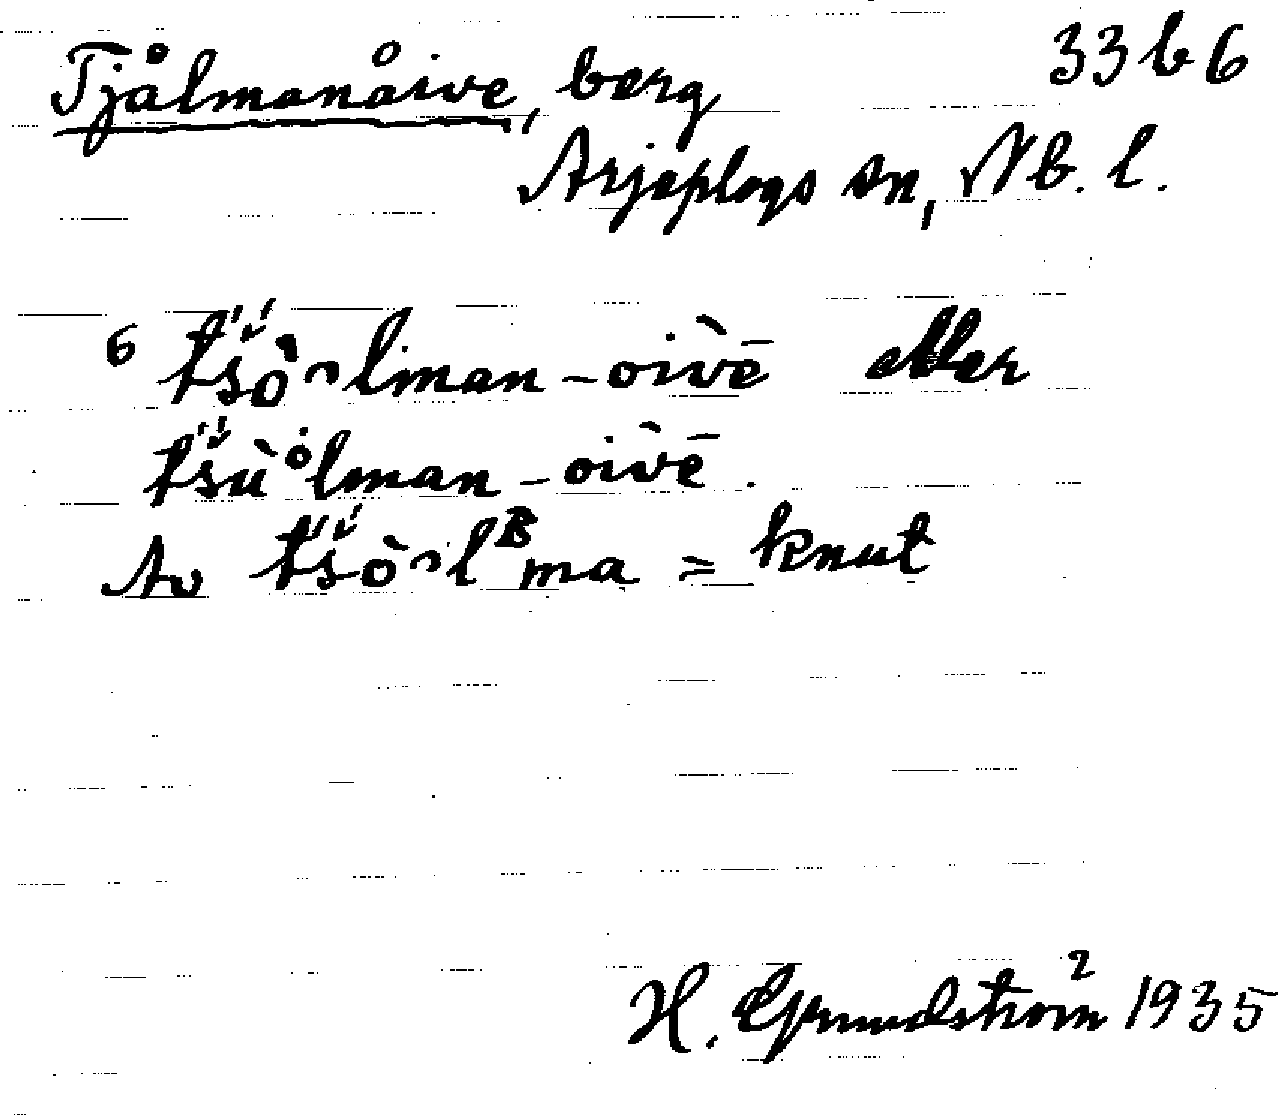 Tjålmanåive, berg 33 b 6
Arjeplogs sn, Nb. l.
6 tšò̀ᴖlman-oi̇vē eller
tšùålman-oi̇vē.
Av tšòᴖlᴮma = knut
H. Grundström 1935